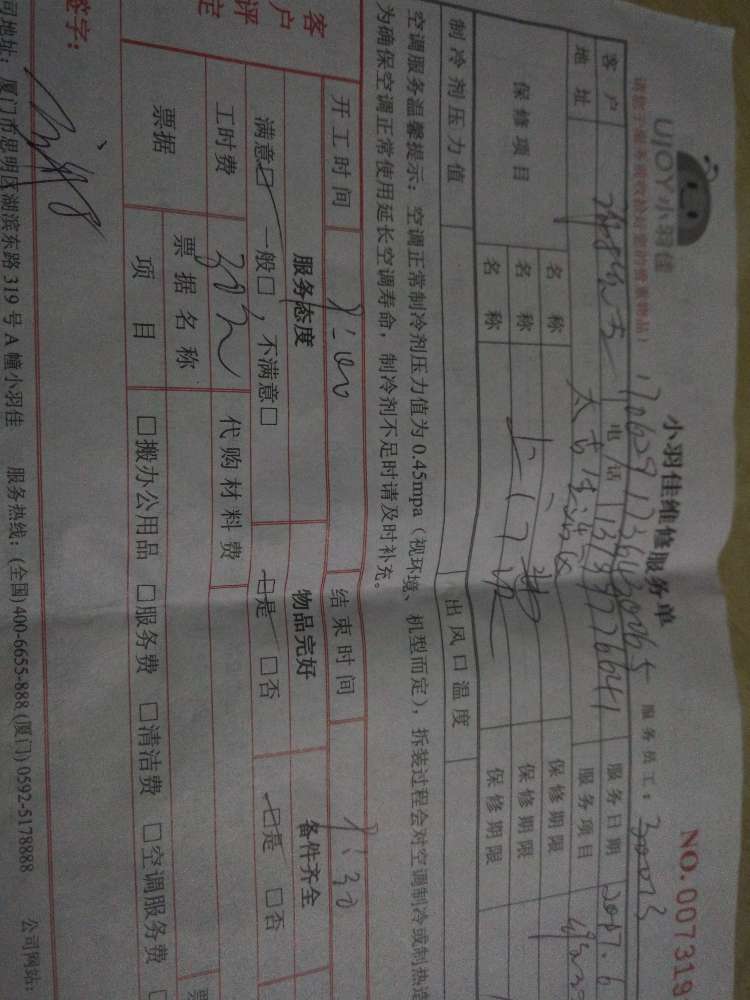 UJOY小羽佳
小羽佳维修服务单
NO.007319
服务员工：30013
客户
电话
服务日期
地址 太古生活区
服务项目
保修项目
名称
保修期限
名称 上门费
保修期限
名称
保修期限
制冷剂压力值
出风口温度
空调服务温馨提示：空调正常制冷剂压力值为0.45mpa（视环境、机型而定），拆装过程会对空调制冷或制热
为确保空调正常使用延长空调寿命，制冷剂不足时请及时补充。
客户评定
开工时间
结束时间
服务态度
物品完好
备件齐全
满意☑ 一般□，不满意□
☑是 □否
☑是 □否
工时费 30元
代购材料费
票据
票据名称
项目
□搬办公用品 □服务费 □清洁费 □空调服务费
签字：
司地址：厦门市思明区湖滨东路319号A幢小羽佳 服务热线：(全国)400-6655-888,(厦门)0592-5178888 公司网站：